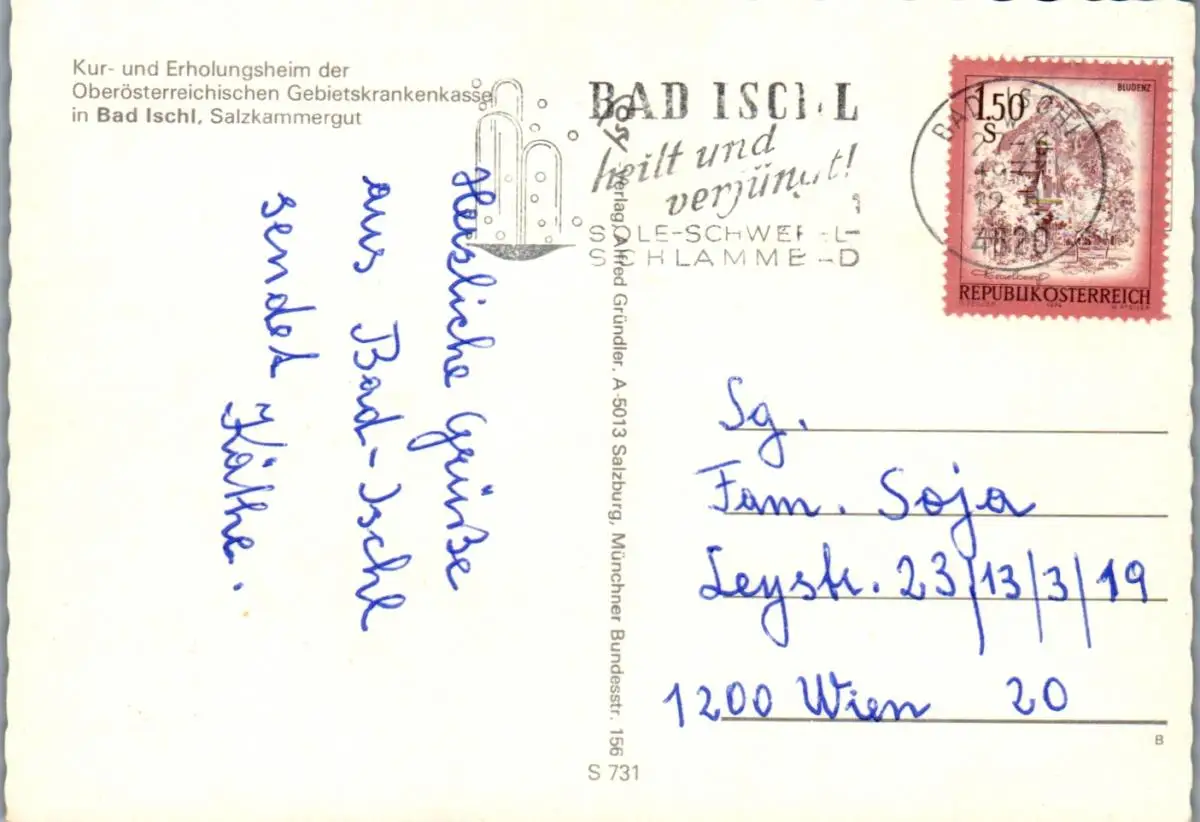 Kur- und Erholungsheim der
Oberösterreichischen Gebietskrankenkasse
in Bad Ischl, Salzkammergut
BAD ISCHL
heilt und
verjüngt!
SOLE-SCHWEFEL-
SCHLAMM
BLUDENZ
1.50
S
REPUBLIK ÖSTERREICH
BAD ISCHL
4820
Herzliche Grüße
aus Bad-Ischl
sendet
Käthe.
Verlag Alfred Gründler, A-5013 Salzburg, Münchner Bundesstr. 156
S 731
Sg.
Fam. Soja
Leystr. 23/13/3/19
1200 Wien 20
B